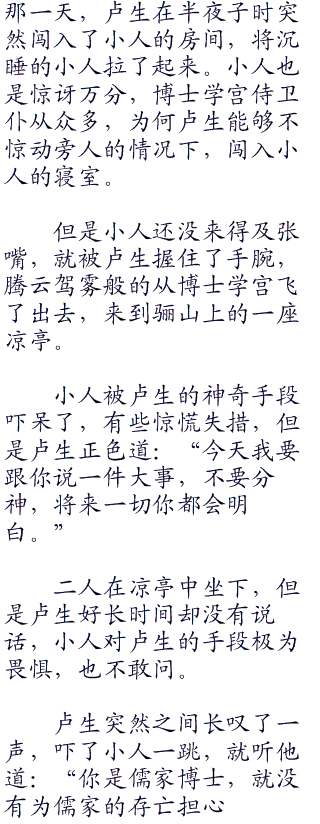 那一天，卢生在半夜子时突
然闯入了小人的房间，将沉
睡的小人拉了起来。小人也
是惊讶万分，博士学宫侍卫
仆从众多，为何卢生能够不
惊动旁人的情况下，闯入小
人的寝室。
但是小人还没来得及张
嘴，就被卢生握住了手腕，
腾云驾雾般的从博士学宫飞
了出去，来到骊山上的一座
凉亭。
小人被卢生的神奇手段
吓呆了，有些惊慌失措，但
是卢生正色道：“今天我要
跟你说一件大事，不要分
神，将来一切你都会明
白。”
二人在凉亭中坐下，但
是卢生好长时间却没有说
话，小人对卢生的手段极为
畏惧，也不敢问。
卢生突然之间长叹了一
声，吓了小人一跳，就听他
道：“你是儒家博士，就没
有为儒家的存亡担心